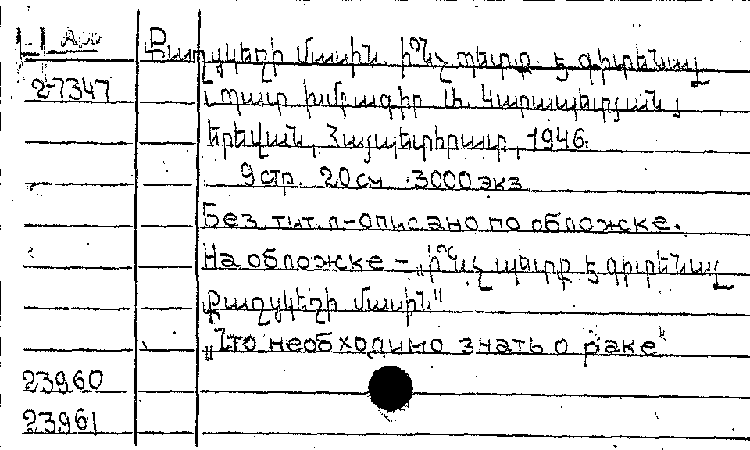 Քաղցկեղի մասին. ի՞նչ պետք է գիտենալ
27347
[պատ խմբագիր Ա. Կարապետյան]
Երեվան, Հայպետհրատ, 1946.
9 стр. 20 см 3000 экз
Без тит. л-описано по обложке.
На обложке – „Ի՞նչ պետք է գիտենալ
Քաղցկեղի մասին"
„Что необходимо знать о раке"
23960
23961